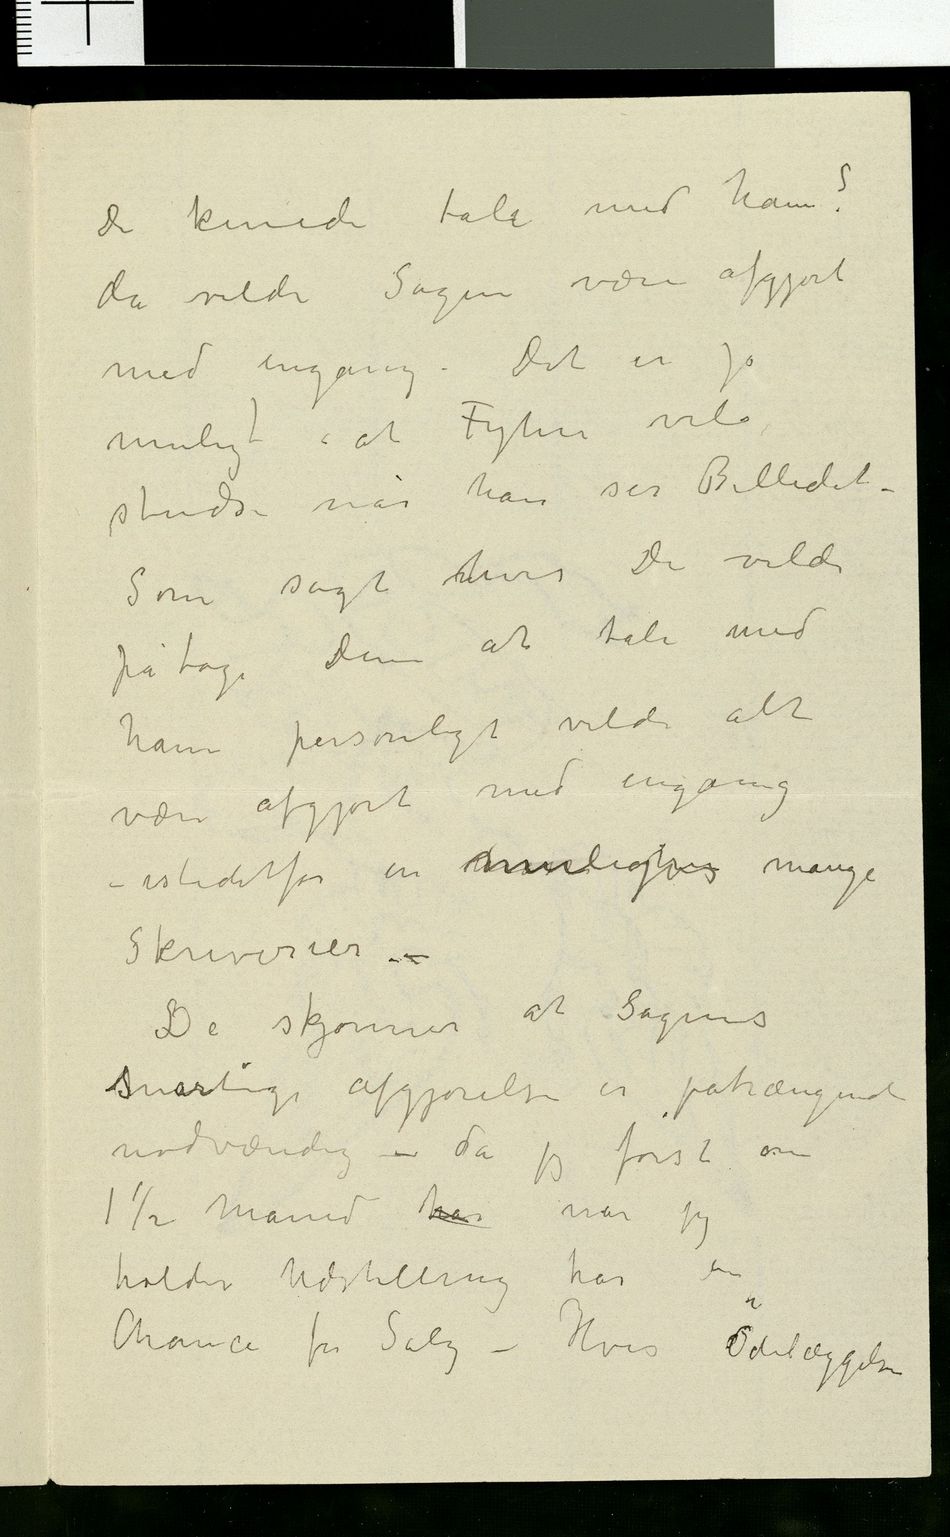 De kunde tale med ham?
da vilde Sagen være afgjort
med engang. Det er jo
muligt – at Fyhn vil
studse når han ser Billedet –
Som sagt hvis De vilde
påtage Dem at tale med
ham personligt vilde alt
være afgjort med engang
– istedetfor en muligvis mange
Skriverier –
De skjønner at Sagens
snartige Afgjørelse er påtrængende
nødvændig – da jeg først om
1½ Maned har når jeg
holder Udstilling har en
Chance for Salg – Hvis Ödelæggelsen